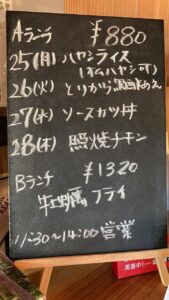 Aランチ ¥880
25(月) ハヤシライス
(オムハヤシ可)
26(火) とりから黒酢あえ
27(水) ソースカツ丼
28(木) 照焼チキン
Bランチ ¥1320
牡蠣フライ
11:30~14:00 営業
実施中!